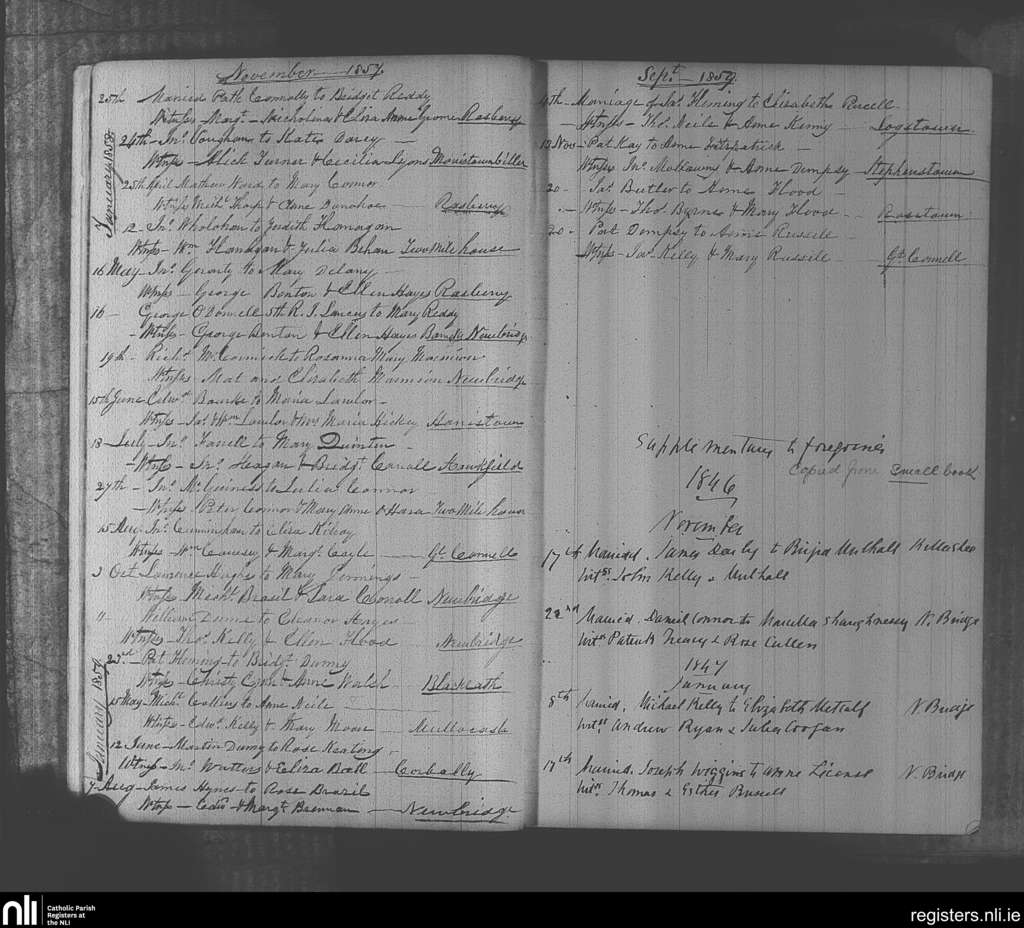 November 1857
25th Married Path Connolly to Bridget Reddy
Witness Margt Nicholson & Eliza Anne Rasberry
January 1858
24th Jno Coughran to Kate Carey
Witness Mich Turner & Cecilia Lyons
25th April Mathew Ward to Mary Connor
Witness Michl Thorp & Anne Donohoe Rasberry
12 Jno Wholohan to Judith Flanagan
Witness Wm Flanagan & Julia Behan Two Mile house
16 May Jno Geraty to Mary Delany
Witness George Benton & Ellen Hayes Rasberry
16 George O'Donnell 5th R. I. Lancers to Mary Reddy
Witness George Benton & Ellen Hayes Barracks Newbridge
19th Richd McCormick to Rosanna Mary Marmion
Witness Mat and Elizabeth Marmion Newbridge
15th June Edwd Bourke to Maria Lawlor
Witness Jas & Wm Lawlor & Maria Hickey Harristown
18 July Jno Farrell to Mary Quinten
Witness Jno Heagan & Bridgt Carroll Hawkfield
27th Jno McGuiness to Julia Connor
Witness Peter Connor & Mary Anne O Hara Two Mile house
15 Aug Jno Cunningham to Eliza Kilroy
Witness Wm Causey & Margt Coyle Gt Connell
3 Oct Laurence Hughs to Mary Jennings
Witness Michl Brasil & Sara Connoll Newbridge
" William Dunne to Eleanor Hayes
Witness Thos Kelly & Ellen Flood Newbridge
January 1857
23rd Pat Fleming to Bridgt Dunny
Witness Christy & Anne Walsh Blackrath
15 May Michl Collins to Anne Neile
Witness Edwd Kelly & Mary Moore
12 June Martin Dunny to Rose Keatong
Witness Jno Watters & Eliza Ball Corbally
7 Aug James Hynes to Rose Brazil
Witness Edwd & Margt Brennan Newbridge
Sept 1857
4th Marriage of Jas Fleming to Elizabeth Pucell
Witness Thos Neile & Anne Kenny
13 Nov Pat Kay to Anne Fitzpatrick
Witness Jno & Anne Dempsy Stephenstown
20 Jas Butler to Anne Flood
Witness Thos Byrne & Mary Flood Rosetown
20 Pat Dempsy to Annie Russell
Witness Jas Kelly & Mary Russell Gt Connell
Supplementary to foregoing
Copied from small book
1846
November
17th Married James Darby to Nuthall
Witss John Kelly & Nuthall
22nd Married Daniel Connor to Marcella Shaughnessy N. Bridge
Wits Patrick Treacy & Rose Cullen
1847
January
8th Married Michael Kelly to Elizabeth Metcalf N. Bridge
Witss Andrew Ryan & Julia Coogan
17th Married Joseph Wiggins to Anne N. Bridge
Witss Thomas & Esther Russell
nli
Catholic Parish
Registers at
the NLI
registers.nli.ie